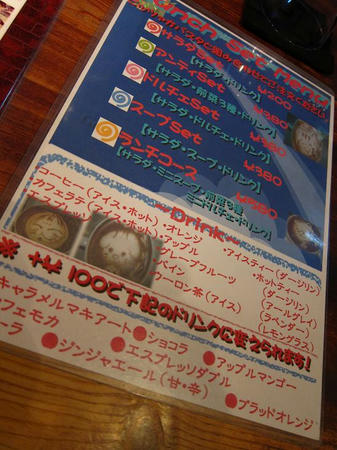 Lunch Set Menu
サラダSet ¥200
【サラダ・ドリンク】
アンティSet ¥380
【サラダ・前菜3種・ドリンク】
ドルチェSet ¥380
【サラダ・ドルチェ・ドリンク】
スープSet ¥380
【サラダ・スープ・ドリンク】
ランチコース
【サラダ・ミニスープ・前菜3種
ミニドルチェ・ドリンク】
Drink
コーヒー(アイス・ホット)
カフェラテ(アイス・ホット)
・オレンジ
・アップル
グレープフルーツ
パイン
ウーロン茶(アイス)
・アイスティー(ダージリン)
・ホットティー
(ダージリン)
(アールグレイ)
(ラベンダー)
(レモングラス)
※ +¥100で下記のドリンクに変えられます!
キャラメルマキアート ●ショコラ ●アップルマンゴー
カフェモカ ●エスプレッソダブル
コーラ ●ジンジャエール(甘・辛) ●ブラッドオレンジ